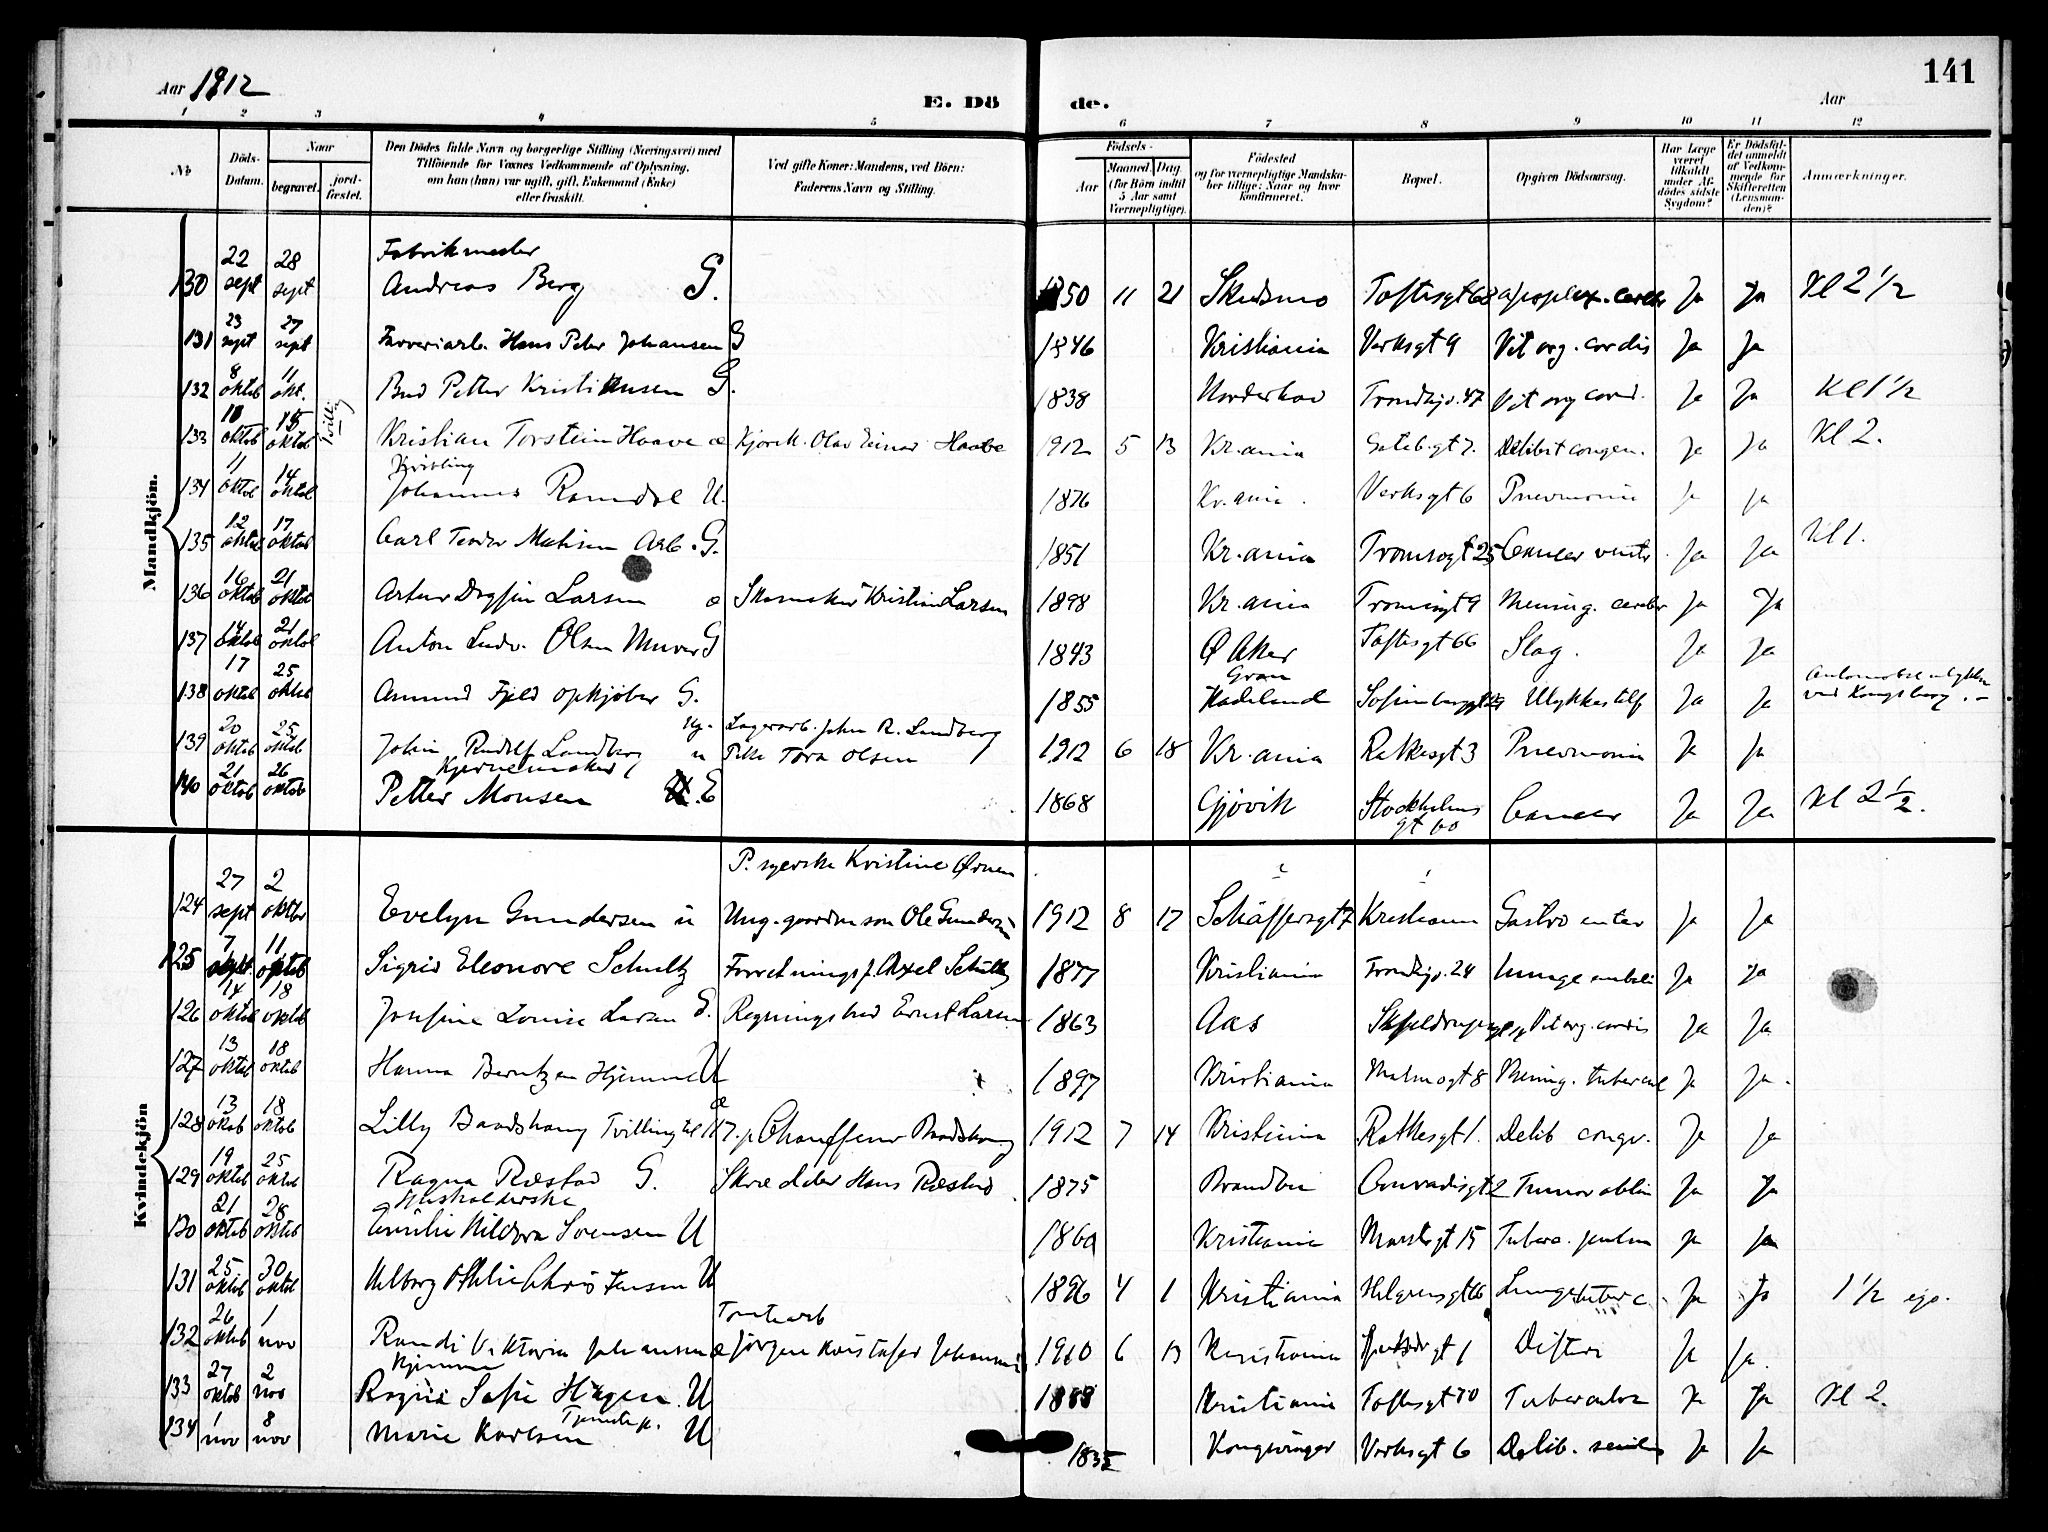 141
Aar 1912
E. Dö de.
Aar
1 2 3 4 5 6 7 8 9 10 11 12
No
Döds-Datum.
Naar
begravet.
jord-fæstet.
Den Dödes fulde Navn og borgerlige Stilling (Næringsvei) med
Tilföiende for Voxnes Vedkommende af Oplysning,
om han (hun) var ugift, gift, Enkemand (Enke)
eller fraskilt.
Ved gifte Koner: Mandens, ved Börn:
Faderens Navn og Stilling.
Födsels-
Aar
Maaned. Dag.
(for Börn indtil
5 Aar samt
Værnepligtige).
Födested
og for værnepligtige Mandska-
ber tillige: Naar og hvor
konfirmeret.
Bopæl.
Opgiven Dödsaarsag.
Har Læge
været
tilkaldt
under Af-
dödes sidste
Sygdom?
Er Dödsfal-
det anmeldt
af Vedkom-
mende for
Skifteretten
(Lensman-
den)?
Anmærkninger.
Mandkjön.
Fabrikmester
130 22 sept 28 sept Andreas Berg G. 1850 11 21 Skedsmo Toftesgt 68 apoplex. cerebr Ja Ja Kl 2 1/2
131 23 sept 27 sept Hans Peter Johansen G 1846 Kristiania Verksgt 9 Vit org. cordis Ja Ja
132 8 oktob 11 okt. Bud Petter Kristiansen G. 1838 Norderhov Trondhjv. 47 Vit org cord. Ja Ja Kl 1 1/2
133 10 oktob 15 oktob Kristian Torstein Haave æ Kjörek. Olav Einar Haave 1912 5 13 Kr.ania Debilit congen. Ja Ja Kl 2.
Tvilling
134 11 oktob 14 oktob Johannes Ramdal U. 1876 Kr.ania. Verksgt 6 Pneumonia Ja Ja
135 12 oktob 17 oktob Carl Teodor Mathisen Arb. G. 1851 Kr.ania Tromsogt 25 Cancer ventr. Ja Ja Kl 1.
136 16 oktob 21 oktob Artur Dagfin Larsen æ Skomaker Kristian Larsen 1898 Kr.ania Tromsgt 9 Mening. cerebr Ja Ja
137 14 oktob 21 oktob Anton Ludv. Olsen Murer G 1843 Ø Aker Toftesgt 66 Slag. Ja Ja
138 17 oktob 25 oktob Amund Fjeld opkjöber G. 1855 Gran Hadeland Ulykkestilf Ja Ja Automobilulykke ved Kongsberg. –
139 20 oktob 25 oktob John Rudolf Lundberg u Lagerarb. John R. Lundberg
Pike Tora Olsen 1912 6 18 Kr.ania Rathesgt 3 Pneumonia Ja Ja
140 21 oktob 26 oktob Petter Monsen E 1868 Gjövik Stockholms gt 60 Cancer Ja Ja Kl 2 1/2.
Kvindekjön
P. syerske Kristine
124 27 sept 2 oktbr Evelyn Gundersen u Ung. Ole Gundersen 1912 8 17 Schäffersgt 7 Kristiania Gastro enter Ja Ja
125 7 oktob 11 oktob Sigrid Eleonore Schultz Forretningsf. Axel Schultz 1877 Kristiania Trondhjv. 24 Lunge emboli Ja Ja
126 14 oktob 18 oktob Josefine Louise Larsen E. Regningsbud Ernst Larsen 1863 Aas Vit org. cordis Ja Ja
127 13 oktob 18 oktob Hanna Berntzen Hjemme U 1897 Kristiania Malmogt 8 Mening. tubercul Ja Ja.
128 13 oktob 18 oktob Lilly Baadshaug Tvilling æ Chauffeur Baadshaug 1912 7 14 Kristiania Rathesgt 1. Debil congen. Ja Ja
129 19 oktob 25 oktob Ragna Ræstad G. Skrædder Hans Ræstad 1875 Brandbu Conradisgt 2 Tumor Ja Ja
Husholderske
130 21 oktob 28 oktob Emilie Hildora Sorensen U 1860 Kristiania Marstrgt 15 Tuberc. pulm Ja Ja
131 25 oktob 30 oktob Valborg Othilie Christensen U 1896 4 1 Kristiania Helgesensgt 66 Lungetuberc. Ja Ja 1 1/2
132 26 oktob 1 nov Randi Viktoria Johansen æ Jörgen Kristofer Johansen 1910 6 13 Kristiania Difteri Ja Ja.
Hjemme
133 27 oktob 2 nov Ragna Sofie Hagen. U 1888 Kristiania Toftesgt 70 Tuberculos Ja Ja Kl 2.
134 1 nov 8 nov Marie Karlsen Tjenstep. U 1835 Kongsvinger Verksgt 6 Debil. senilis Ja Ja